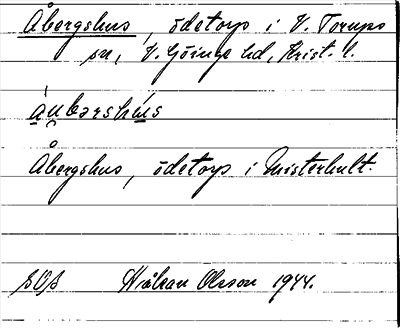 Åbergshus, ödetorp i V. Torups
sn, V. Göinge hd, Krist. l.
Åbergshus, ödetorp i Misterhult.
Håkan Olsson 1944.